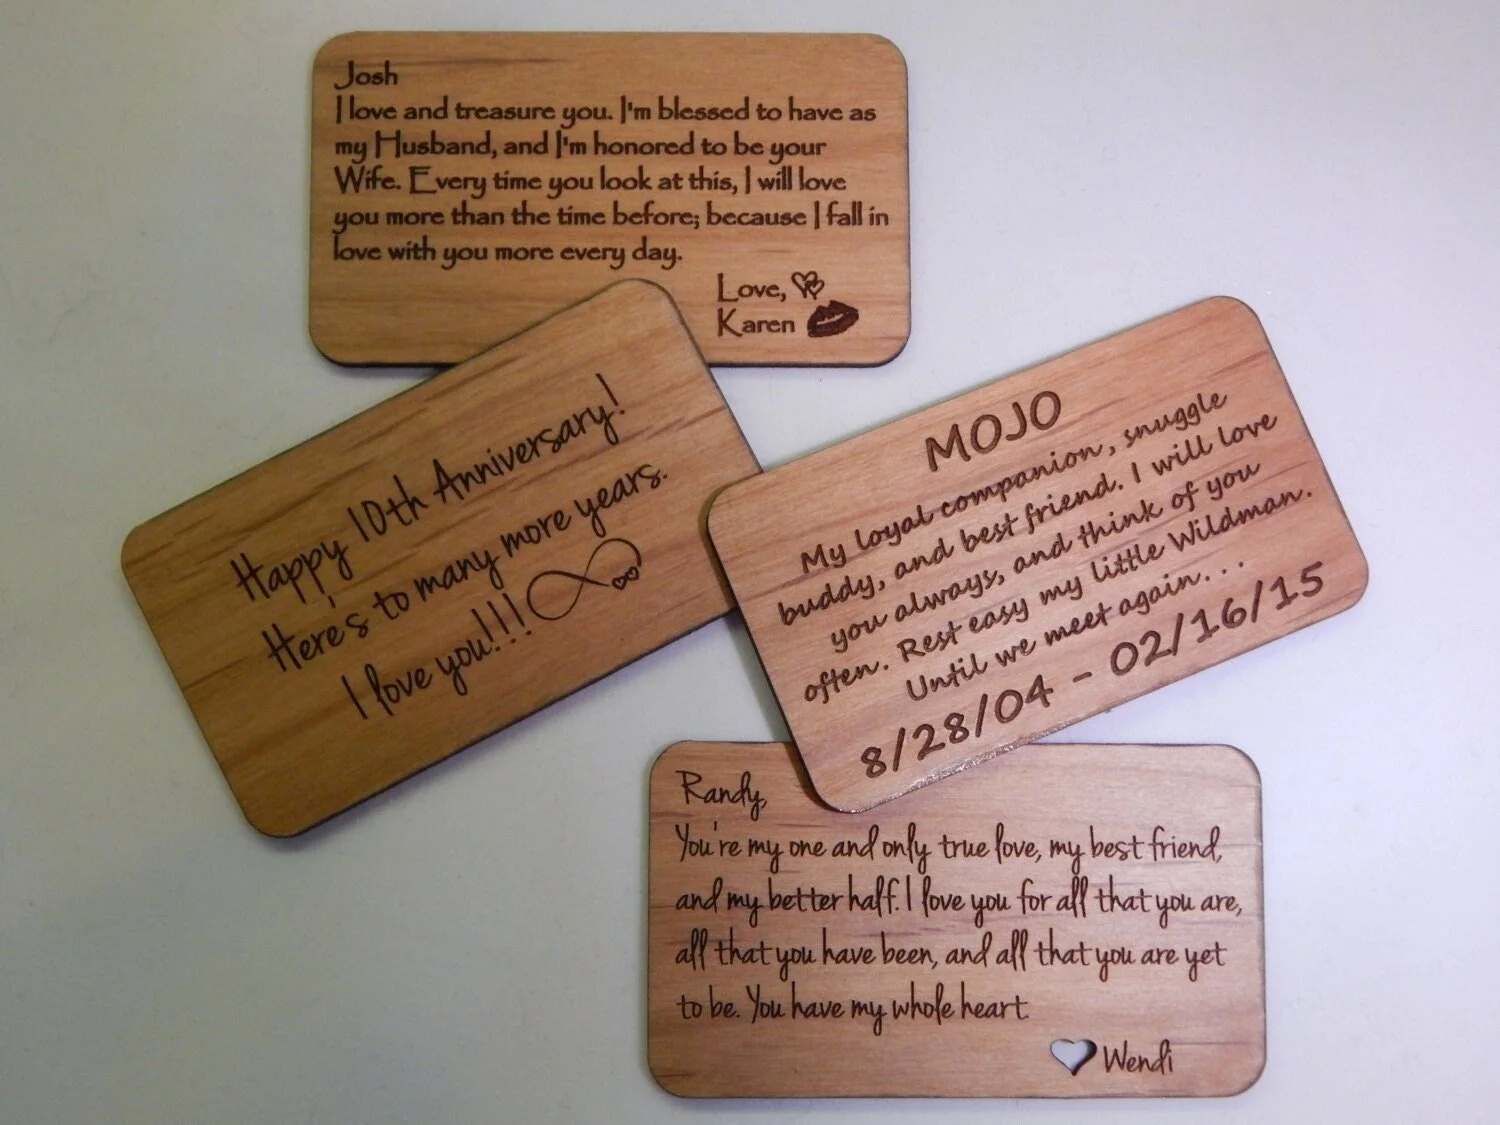 Josh
I love and treasure you. I'm blessed to have as
my Husband, and I'm honored to be your
Wife. Every time you look at this, I will love
you more than the time before; because I fall in
love with you more every day.
Love,
Karen
Happy 10th Anniversary!
Here's to many more years.
I love you!!!
MOJO
My loyal companion, snuggle
buddy, and best friend. I will love
you always, and think of you
often. Rest easy my little Wildman.
Until we meet again. . .
8/28/04 - 02/16/15
Randy,
You're my one and only true love, my best friend,
and my better half. I love you for all that you are,
all that you have been, and all that you are yet
to be. You have my whole heart.
Wendi